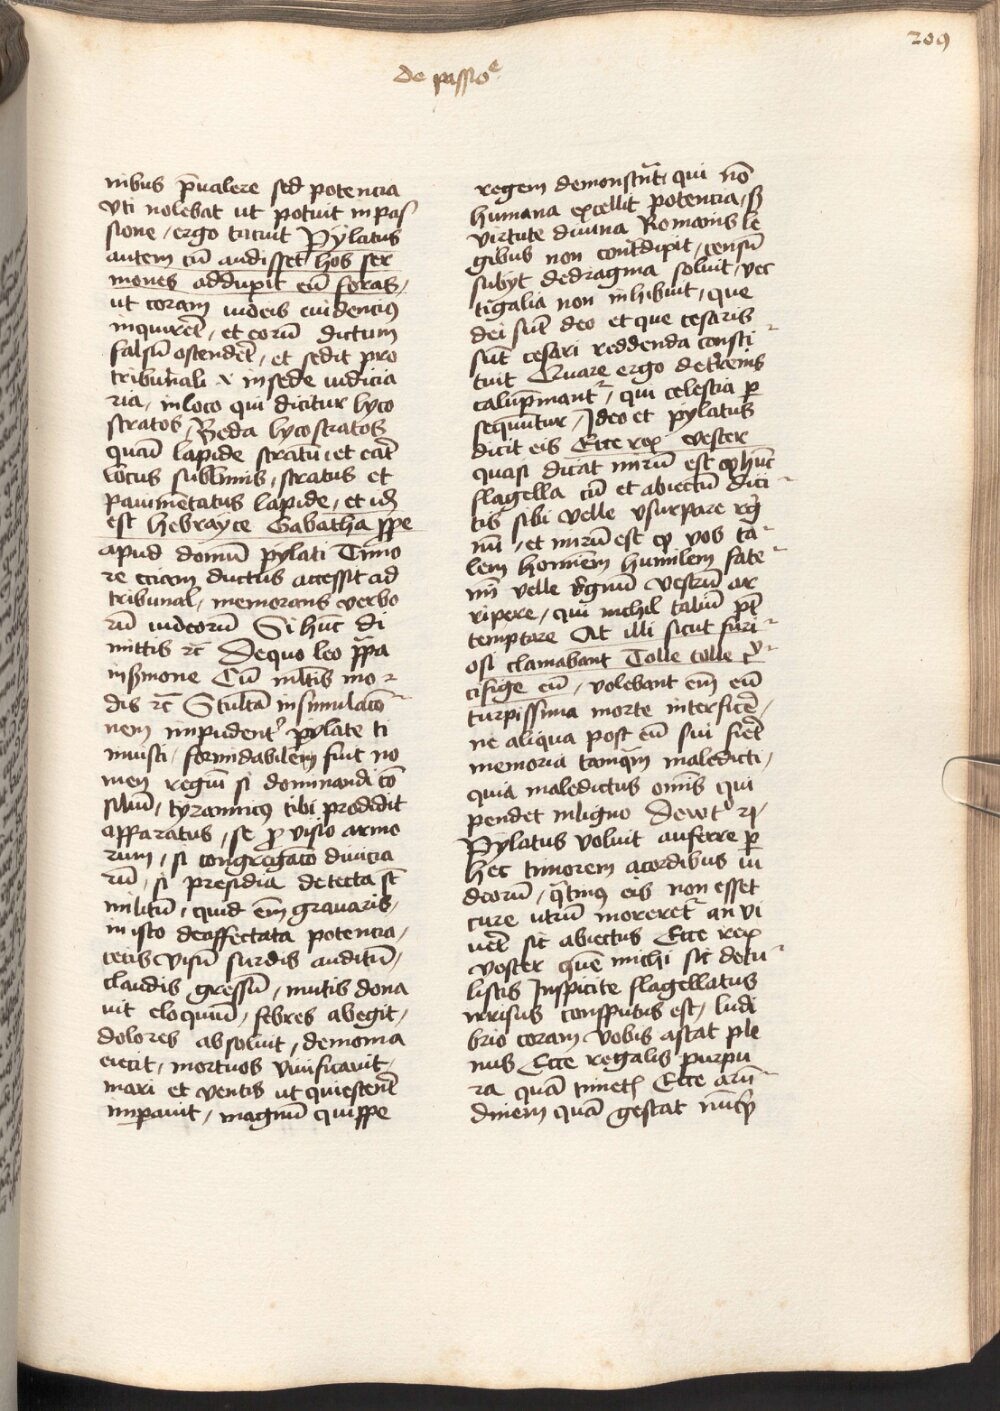 209
de passioe
nibus p̄ualere sed potencia
vti nolebat ut potuit in pas
sione / ergo tacuit Pylatus
autem cū audisset hos ser
mones adduxit eū foras /
ut coram iudeis euidencius
inquirēt / et eorū dictum
falsū ostendēt / et sedit pro
tribunali in sede iudicia
ria / in loco qui dicitur lyco
stratos / Beda lycostratos
quasi lapide stratū et erat
locus sublimis / stratus et
pauimētatus lapide / et id
est hebrayce Gabatha ꝓpe
apud domū pylati Timo
re eciam ductus accessit ad
tribunal / memorans verbo
rū iudeorū Si hūc di
mittis ⁊c̄ De quo leo p̄pa
in s̄mone Cū mltis mo
dis ⁊c̄ Stultā insimulacō
nem impudentꝰ pylate ti
muisti / formidabilem fuit no
men regiū si dominandi cō
siliū / tyrannicꝰ tibi prodidit
apparatus / se ꝓuisio armo
rum / si congregacō diuicia
rū / si presidia detecta sūt
militū / quid em̄ grauaris /
in isto de affectata potencia /
cecis visū surdis auditū /
claudis gressū / mutis dona
uit eloquiū / febres abegit /
dolores absoluit / demonia
eiecit / mortuos viuificauit
mari et ventis ut quiescerēt
imꝑauit / magnū quippe
regem demonstrāt qui nō
humana excellit potencia / sʒ
virtute diuina Romanis le
gibus non contradixit / censū
subyt dedragma soluit / vec
tigalia non inhibuit / que
dei sūt deo et que cesaris
sūt cesari reddenda consti
tuit Quare ergo de t̄renis
calūpniantꝰ / qui celestia ꝑ
sequntur / Ideo et pylatus
dicit eis Ecce rex vester
quasi dicat mirū est ꝙ hūc
flagella cū et abiectū dici
tis sibi velle vsurpare reg
nū / et mirū est ꝙ vos ta
lem hominem humilem fate
mī velle regnū vestrū ar
ripere / qui nichil taliū pōt
temptare At illi sicut furi
osi clamabant Tolle tolle cru
cifige eū / volebant em̄ eū
turpissima morte interficere /
ne aliqua post eū sui fieret
memoria tamqm̄ maledicti /
quia maledictus omīs qui
pendet in ligno Dewt
Pylatus voluit auferre ꝑ
hec timorem a cordibus iu
deorū / q̄tinus eis non esset
cure utrū moreretꝰ an vi
uēt sic abiectus Ecce rex
vester quē michi sic detu
listis Inspicite flagellatus
irrisus consputus est / ludi
brio coram vobis astat ple
nus Ecce regalis purpu
ra quā timetis Ecce arū
dinem quā gestat